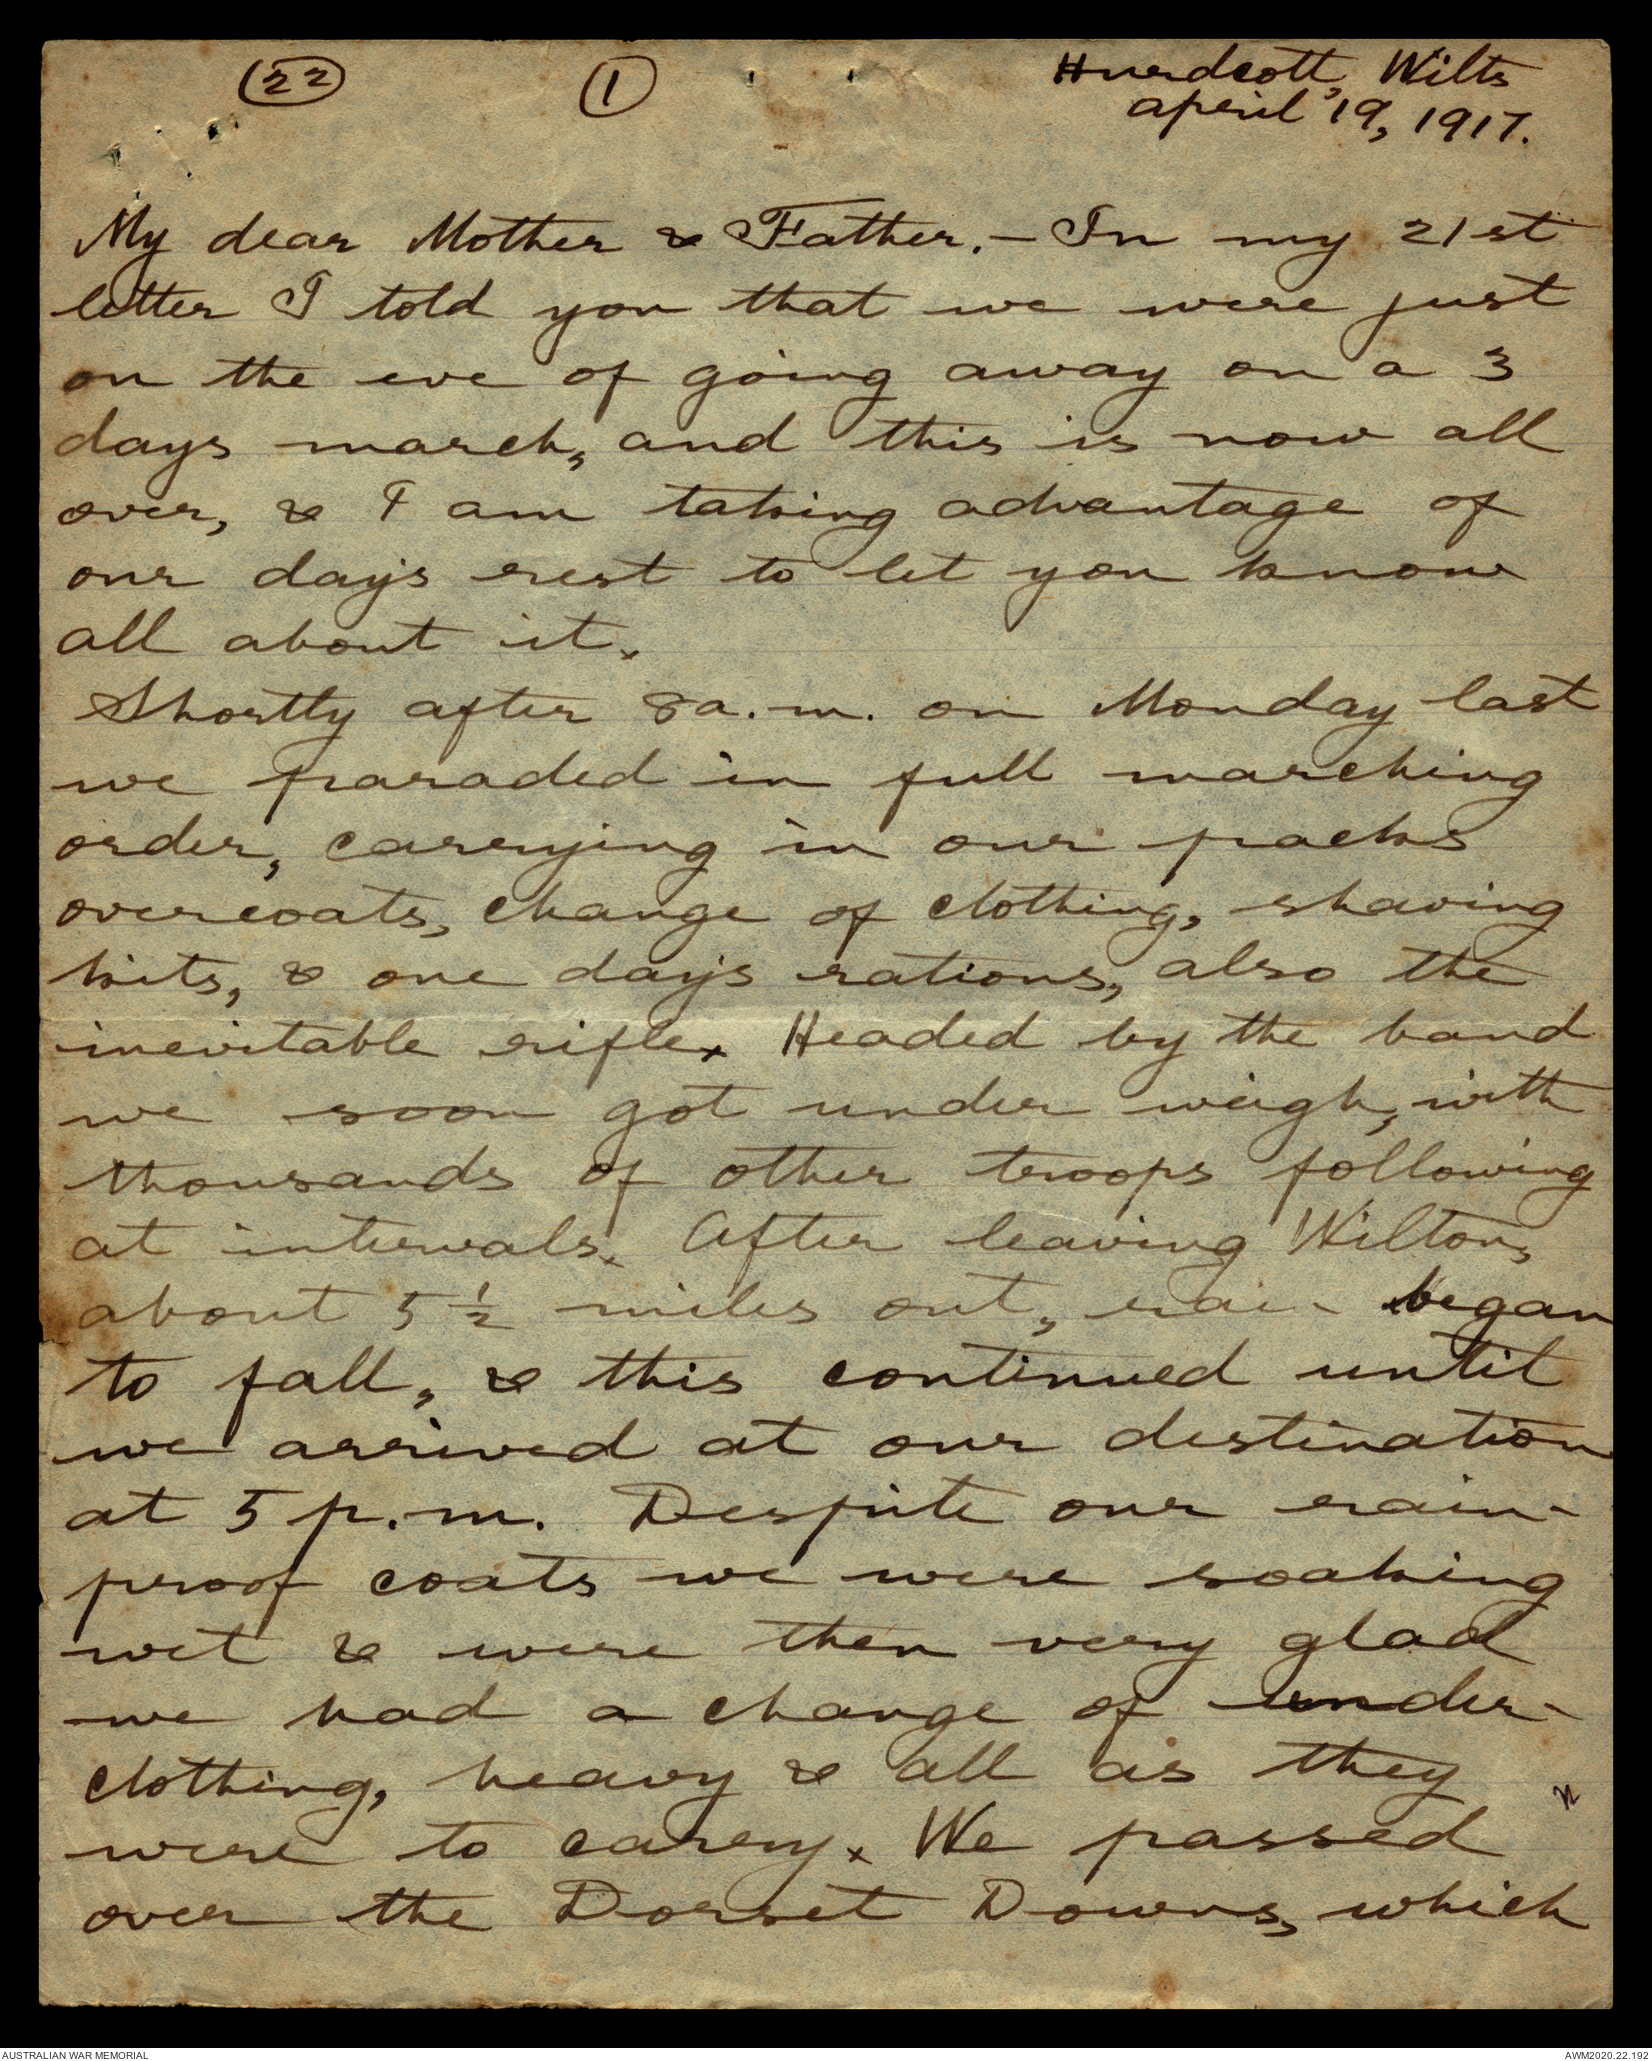 22
1
Hurdcott, Wilts
April 19, 1917.
My dear Mother & Father. - In my 21st
letter I told you that we were just
on the eve of going away on a 3
days march, and this is now all
over, & I am taking advantage of
our day's rest to let you know
all about it.
Shortly after 8 a.m. on Monday last
we paraded in full marching
order, carrying in our packs
overcoats, change of clothing, shaving
kits, & one day's rations, also the
inevitable rifle. Headed by the band
we soon got under weigh, with
thousands of other troops following
at intervals. After leaving Wilton,
about 5 1/2 miles out, rain began
to fall, & this continued until
we arrived at our destination
at 5 p.m. Despite our rain-
proof coats we were soaking
wet & were then very glad
we had a change of under-
clothing, heavy & all as they
were to carry. We passed
over the Dorset Downs, which
AUSTRALIAN WAR MEMORIAL
AWM2020.22.192